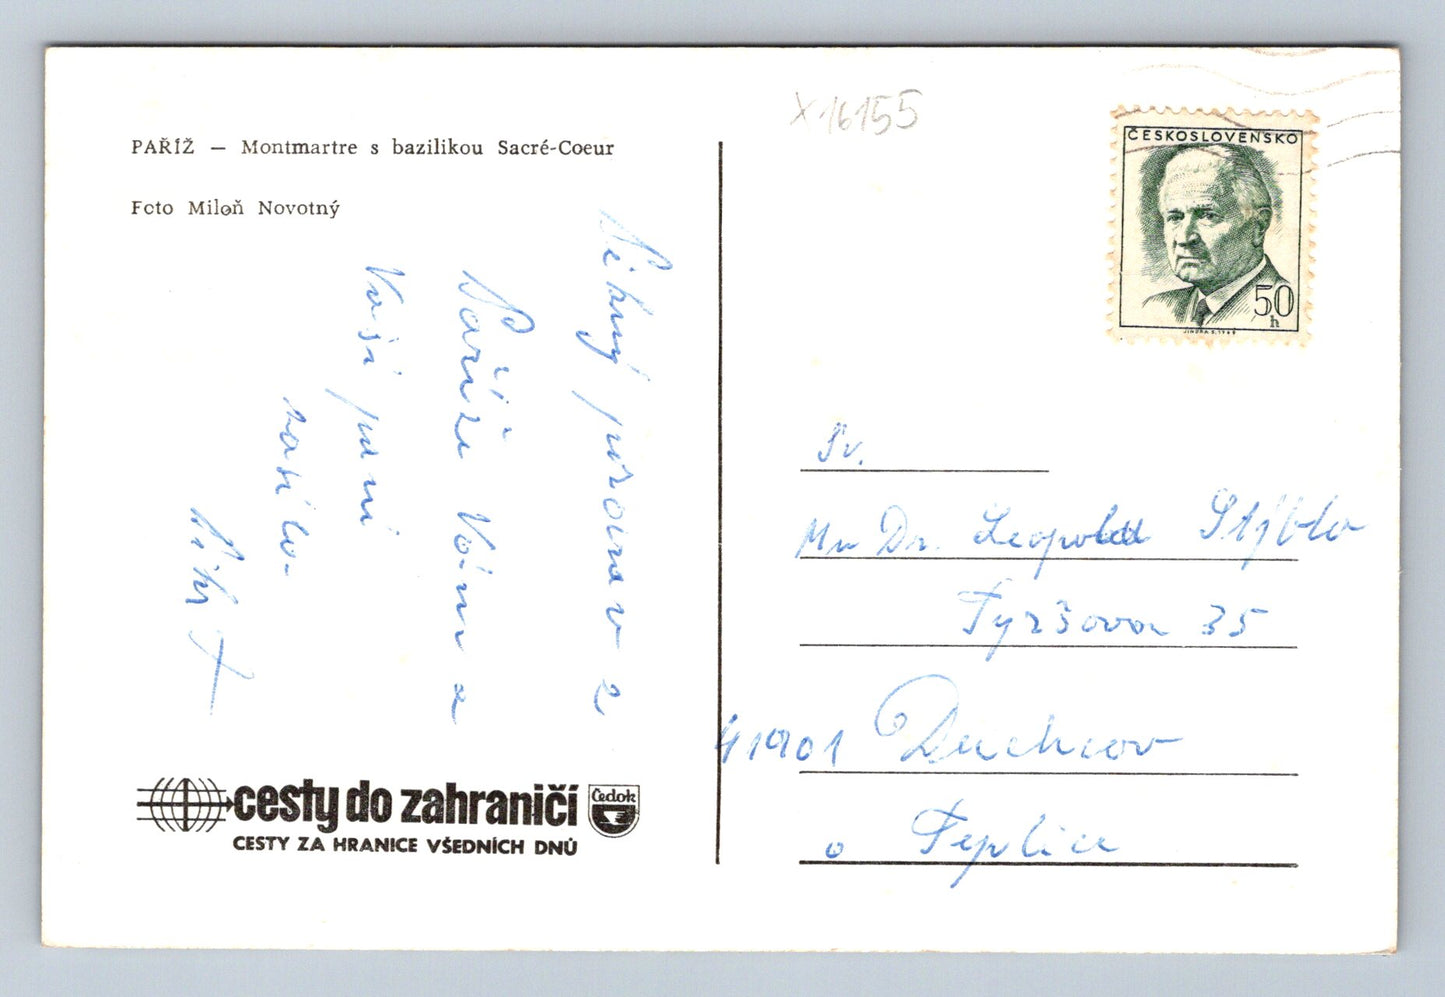 PAŘÍŽ — Montmartre s bazilikou Sacré-Coeur
Foto Miloň Novotný
Pěkný pozdrav z
Paříže Vám a
Vaší paní
zasílá
X16155
ČESKOSLOVENSKO
50
h
JINDRA S. 1968
Mr Dr. Leopold Stýblo
Tyršova 35
41901 Duchcov
o Teplice
cesty do zahraničí
Čedok
CESTY ZA HRANICE VŠEDNÍCH DNŮ